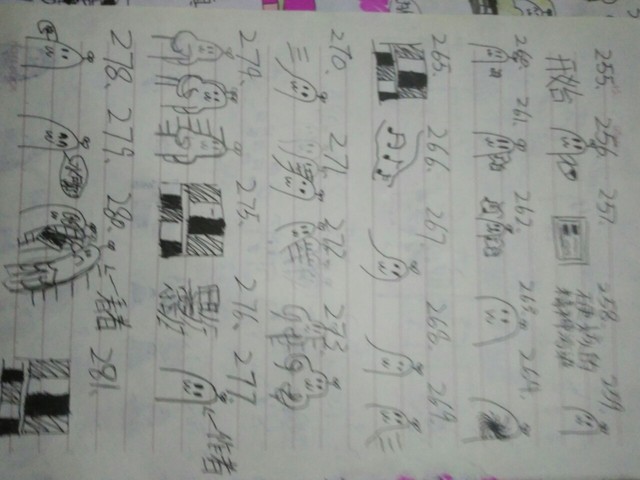 255. 256. 257. 258. 259.
开始
260. 261. 262. 263. 264.
265. 266. 267. 268. 269.
270. 271. 272. 273.
274. 275. 276. 277.
←作者
278. 279. 280. ←作者 281.